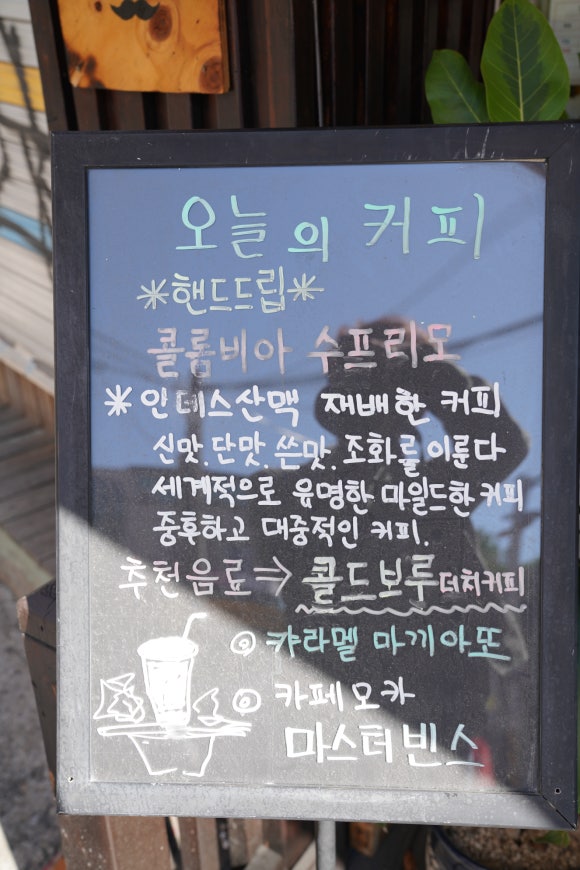 오늘의 커피
*핸드드립*
콜롬비아 수프리모
*안데스산맥 재배한 커피
신맛.단맛.쓴맛.조화를 이룬다
세계적으로 유명한 마일드한 커피
중후하고 대중적인 커피.
추천음료⇒ 콜드브루 더치커피
◎ 캬라멜 마끼아또
◎ 카페모카
마스터빈스